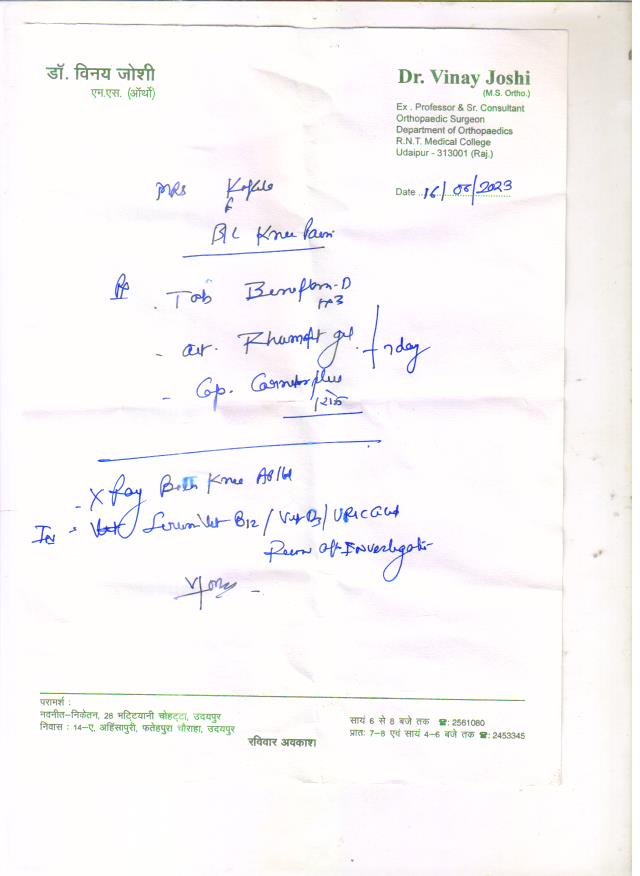 डॉ. विनय जोशी
एम.एस. (ऑर्थो)
Dr. Vinay Joshi
(M.S. Ortho.)
Ex. Professor & Sr. Consultant
Orthopaedic Surgeon
Department of Orthopaedics
R.N.T. Medical College
Udaipur - 313001 (Raj.)
Date 16/06/2023
MRS
B/L Knee Pain
Rx
. Tab -D
- gel. 7 day
- Cap. plus
- X Ray Both Knee AP/Lat
Serum Vit B12 / Vit D3 / URIC Acid
Investigation
परामर्श :
नवनीत-निकेतन, 28 भट्टियानी चोहट्टा, उदयपुर
निवास : 14-ए, अहिंसापुरी, फतेहपुरा चौराहा, उदयपुर
सायं 6 से 8 बजे तक ☎: 2561080
प्रातः 7-8 एवं सायं 4-6 बजे तक ☎: 2453345
रविवार अवकाश